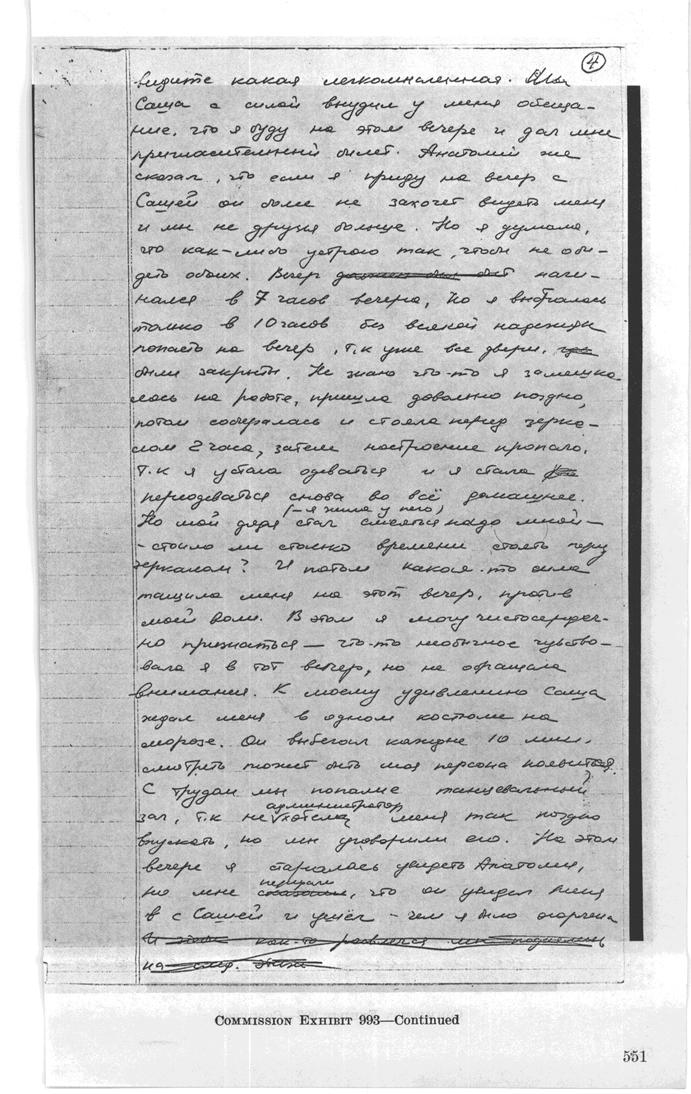 4
видите какая легкомысленная.
Саша с силой внудил у меня обеща-
ние, что я буду на этом вечере и дал мне
пригласительный билет. Анатолий же
сказал, что если я приду на вечер с
Сашей он боле не захочет видеть меня
и мы не друзья больше. Но я думала,
что как-либо устрою так, чтобы не оби-
деть обоих. Вечер должен был начи-
нался в 7 часов вечера, Но я выбралась
только в 10 часов без всякой надежды
попасть на вечер, т.к уже все двери
были закрыты. Не знаю что-то я замешка
лась на работе, пришла довольно поздно,
потом собиралась и стояла перед зерка-
лом 2 часа, затем настроение пропало.
т.к я устала одеваться и я стала
переодеваться снова во всё домашнее.
(-я жила у него)
Но мой дядя стал смеяться надо мной -
- стоило ли столько времени стоять перед
зеркалом? И потом какая-то сила
тащила меня на этот вечер, против
моей воли. В этом я могу чистосердеч-
но признаться - что-то необычное чувство-
вала я в тот вечер, но не обращала
внимания. К моему удивлению Саша
ждал меня в одном костюме на
морозе. Он выбегал каждые 10 мин.
смотреть может быть моя персона появится.
С трудом мы попали танцевальный
администратор
зал, т.к не хотел меня так поздно
впускать, но мы уговорили его. На этом
вечере я старалась увидеть Анатолия,
передали
но мне сказали, что он увидел меня
в с Сашей и ушёл - чем я была огорчена
И как-то мы
на след.
COMMISSION EXHIBIT 993—Continued
551